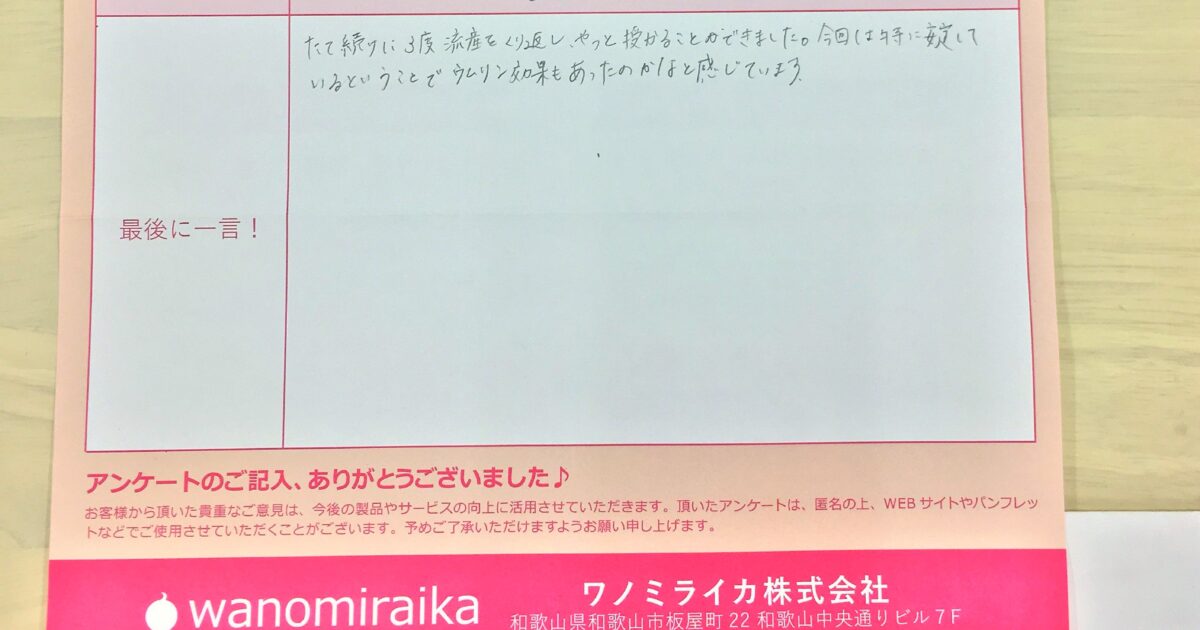 たて続けに3度流産をくり返し、やっと授かることができました。今回は特に安定して
いるということでウムリン効果もあったのかなと感じています。
最後に一言！
アンケートのご記入、ありがとうございました♪
お客様から頂いた貴重なご意見は、今後の製品やサービスの向上に活用させていただきます。頂いたアンケートは、匿名の上、WEBサイトやパンフレッ
トなどでご使用させていただくことがございます。予めご了承いただけますようお願い申し上げます。
wanomiraika
ワノミライカ株式会社
和歌山県和歌山市板屋町22 和歌山中央通りビル7F